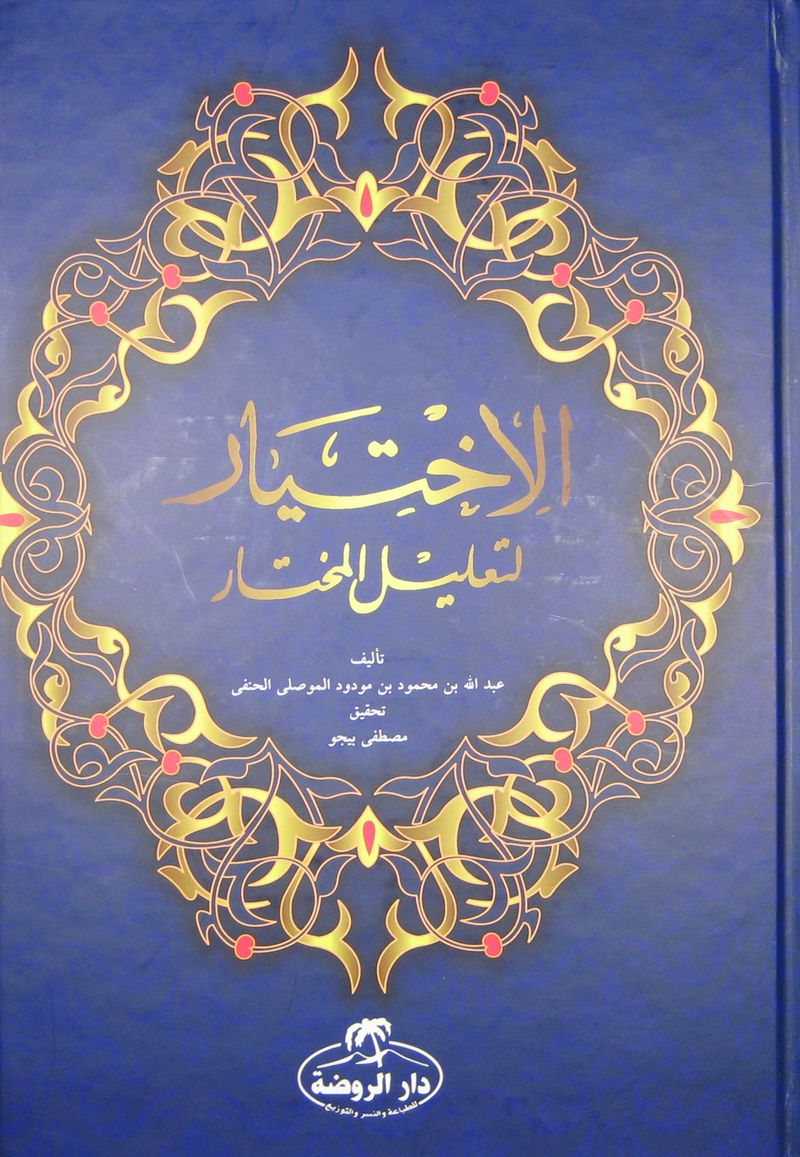 الإختيار
لتعليل المختار
تأليف
عبد الله بن محمود بن مودود الموصلى الحنفى
تحقيق
مصطفى بيجو
دار الروضة
للطباعة والنسر والتوزيع